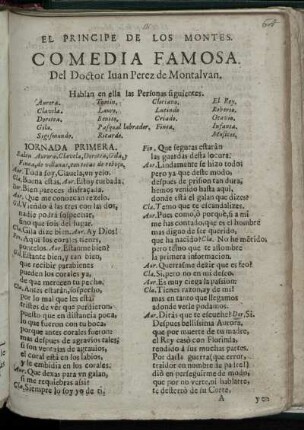 EL PRINCIPE DE LOS MONTES.
COMEDIA FAMOSA.
Del Doctor Iuan Perez de Montalvan.
Hablan en ella las Personas siguientes.
Aurora. Cloriana. El Rey.
Clavela. Ludinio
Dorotea. Benito. Criado. Otavio.
Gila. Pasqual labrador. Finea. Infanta.
Sigismundo. Ricardo. Musicos.
IORNADA PRIMERA.
Salen Aurora, Clavela, Dorotea, Gila, y
Finea, de villanas, con
Aur. Toda soy, Clavela, un yelo.
Cla. Buena estàs. Aur. Estoy turbada:
Cla. Bien pareces disfraçada.
Aur. Que me conozcan rezelo.
Gil. Viendo à las tres con las dos,
nadie podrà sospechar,
sino que sois del lugar.
Cla. Gila dize bien. Aur. Ay Dios!
Fin. Aqui los coràn tienen,
ponèlos. Aur. Estanme bien?
Gil. Estante bien, y tan bien,
que recibir parabienes
pueden los corales ya,
de que merecen tu pecho.
Cla. Antes estaràn, sospecho,
por lo mal que les està
tristes de vèr que presumieron;
puesto que en distancia poca,
si que fueron con tu boca,
porque antes corales fueron
mas despues de agravios tales;
si son ventajas de agravios,
el coral està en los labios,
y la embidia en los corales.
Aur. Que dexas para un galan,
si me requiebras assi?
Cla. Siempre lo soy yo de ti.
Fin. Que seguras estaràn
las guardas desta locura:
Aur. Lindamente se hizo todo;
pero ya que deste modo
despues de prision tan dura,
hemos venido hasta aqui,
donde està el galan que dizes?
Cla. Temo que te escandalizes.
Aur. Pues como, ò porquè, si a mi
me has contado que es el hombre
mas digno de ser querido,
que ha nacido? Cla. No he mẽrido,
pero temo que te assombre
la primera informacion.
Aur. Querràsme dezir que es feo?
Cla. Si, pero no en mi deseo.
Aur. Es muy ciega la passion;
Cla. Tienes razon, ay de mi!
mas en tanto que llegamos
adonde verle podamos.
Aur. Diràs que te escuche? Dor. Si.
Despues bellissima Aurora,
que por muerte de tu madre,
el Rey casò con Florinda,
rendido à sus muchas partes.
Por darla guerra (que error,
traidor en nombre de padre)
diò en perseguirme de modo,
que por no verte, ni hablarte,
te desterrò de su Corte.
A
yo